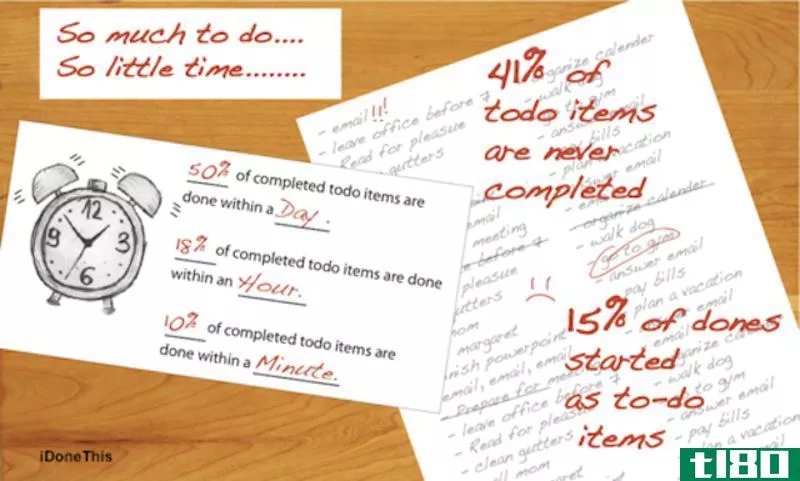 So much to do....
So little time........
50% of completed todo items are
done within a Day.
18% of completed todo items are done
within an Hour.
10% of completed todo items are
done within a Minute.
12
9
3
6
41% of
todo items
are never
completed
15% of dones
started
as to-do
items
- email!!!
- leave office before 7
- Read for pleasue
gutters
organize calender
- walk dog
to gym
- answer email
pay bills
- plan a vacation
answer email
organize calender
- walk dog
go to gym
- answer email
- pay bills
plan a vacation
email
organize calendar
- walk dog
to gym
- answer email
- pay bills
plan a vacation
email
meeting
before 7
pleasue
gutters
mom
margaret
finish powerpoint
email, email, email
- Prepare for meeting
- leave office before 7
- Read for pleasue
- clean gutters
call mom
margaret
iDoneThis
tl80